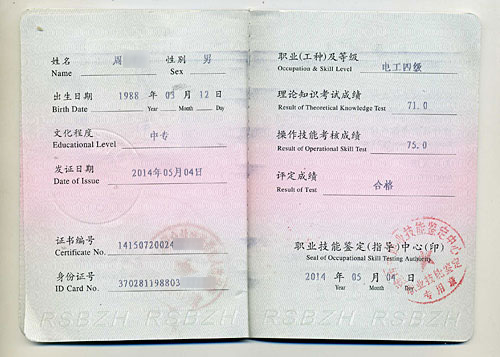 姓名 周 性别 男
Name Sex
出生日期 1988 年 03 月 12 日
Birth Date Year Month Day
文化程度 中专
Educational Level
发证日期 2014年05月04日
Date of Issue
证书编号 14150720024
Certificate No.
身份证号 370281198803
ID Card No.
RSBZH RSBZH
职业(工种)及等级 电工四级
Occupation & Skill Level
理论知识考试成绩 71.0
Result of Theoretical Knowledge Test
操作技能考核成绩 75.0
Result of Operational Skill Test
评定成绩 合格
Result of Test
职业技能鉴定(指导)中心(印)
Seal of Occupational Skill Testing Authority
2014 年 05 月 04 日
Year Month Day
技能鉴定中心
职业技能鉴定
专用章
RSBZH RSBZH